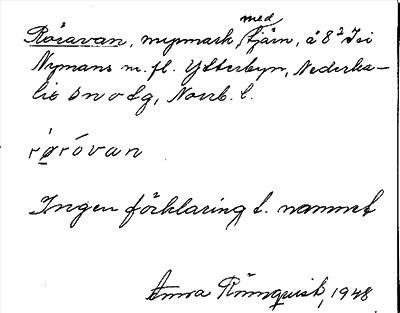 Röåvan, myrmark, med tjärn, å 8² Isi
Nymans m. fl. Ytterbyn, Nederka-
lix sn o tg, Norrb. l.
røróvan
Ingen förklaring t. namnet
Anna Rönnquist, 1948